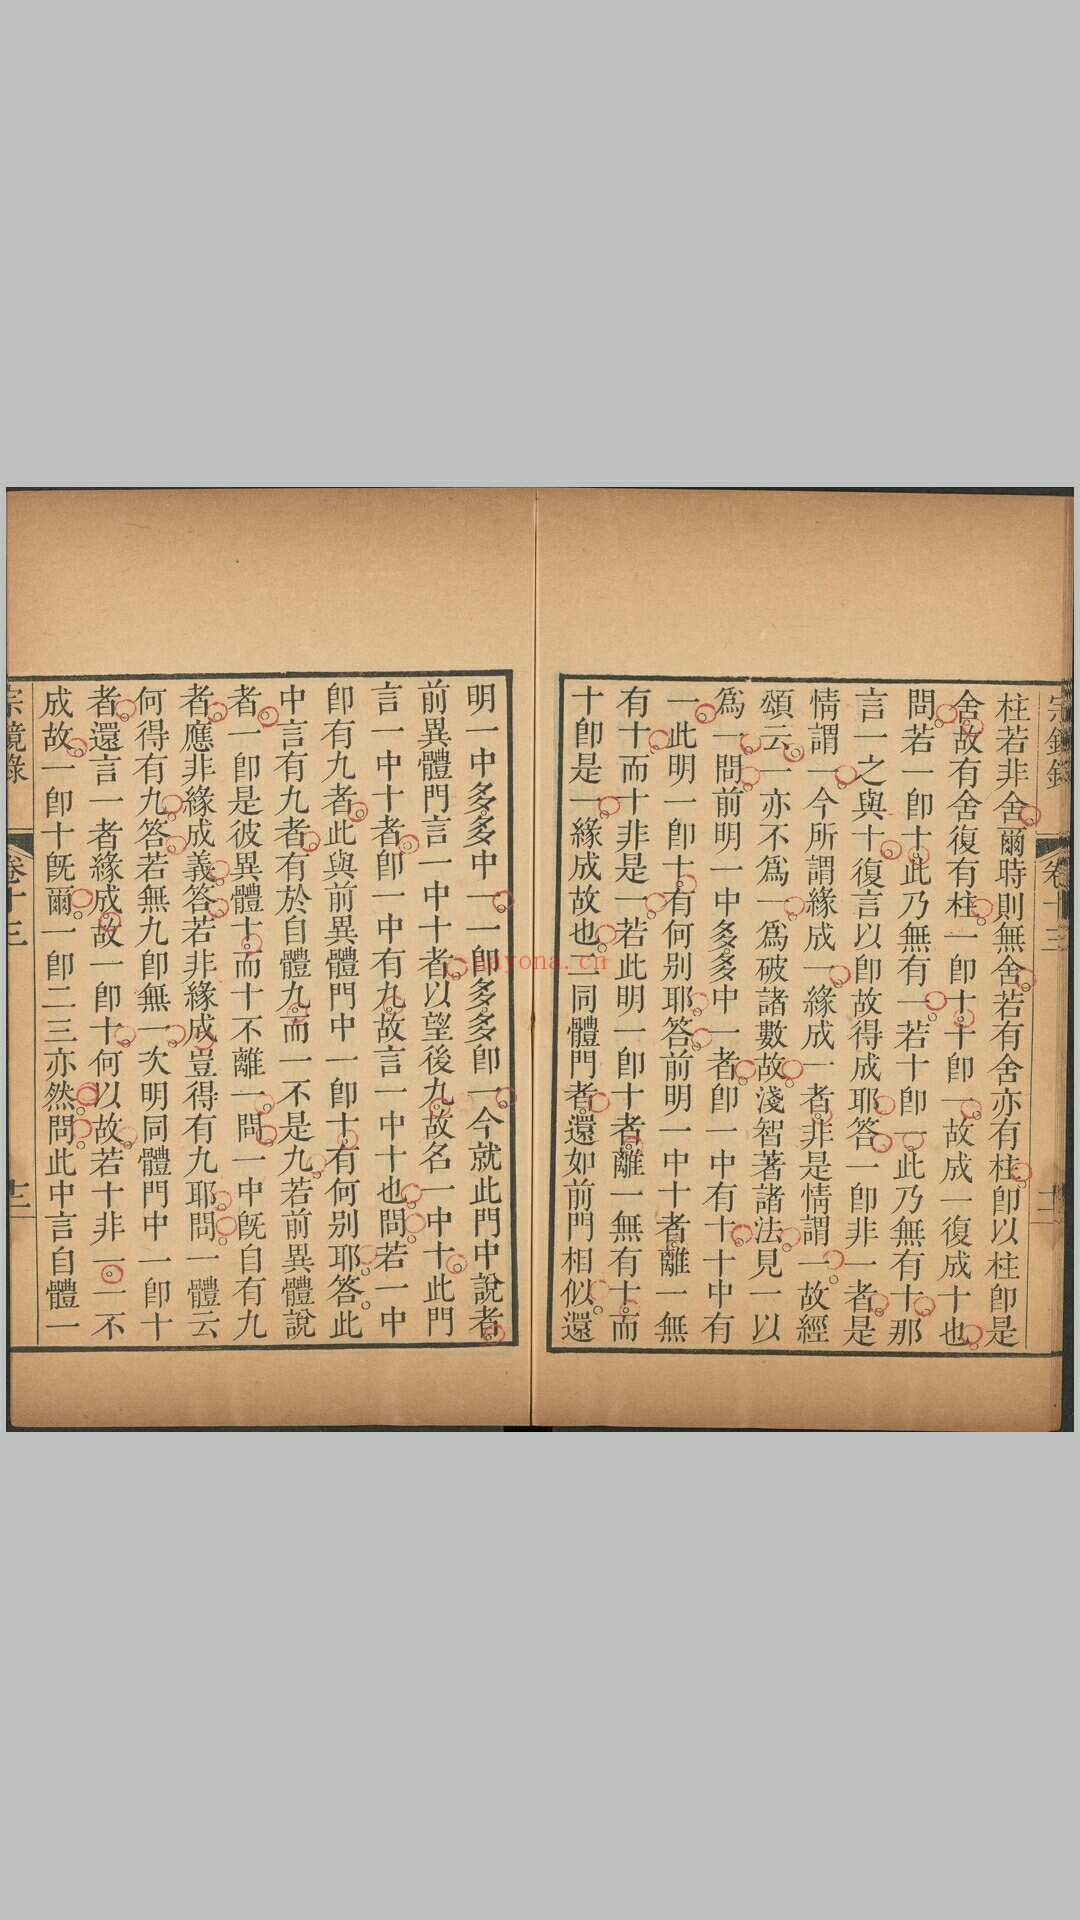 宗鏡錄 卷十三 十二
柱若非舍爾時則無舍若有舍亦有柱卽以柱卽是
舍故有舍復有柱一卽十十卽一故成一復成十也
問若一卽十此乃無有一若十卽一此乃無有十那
言一之與十復言以卽故得成耶答一卽非一者是
情謂一今所謂緣成一緣成一者非是情謂一故經
頌云一亦不為一為破諸數故淺智著諸法見一以
為一問前明一中多多中一者卽一中有十十中有
一此明一卽十有何別耶答前明一中十者離一無
有十而十非是一若此明一卽十者離一無有十而
十卽是一緣成故也二同體門者還如前門相似還
明一中多多中一一卽多多卽一今就此門中說者
前異體門言一中十者以望後九故名一中十此門
言一中十者卽一中有九故言一中十也問若一中
卽有九者此與前異體門中一卽十有何別耶答此
中言有九者有於自體九而一不是九若前異體說
者一卽是彼異體十而十不離一問一中旣自有九
者應非緣成義答若非緣成豈得有九耶問一體云
何得有九答若無九卽無一次明同體門中一卽十
者還言一者緣成故一卽十何以故若十非一一不
成故一卽十旣爾一卽二三亦然問此中言自體一
宗鏡錄 卷十三
nayona.cn